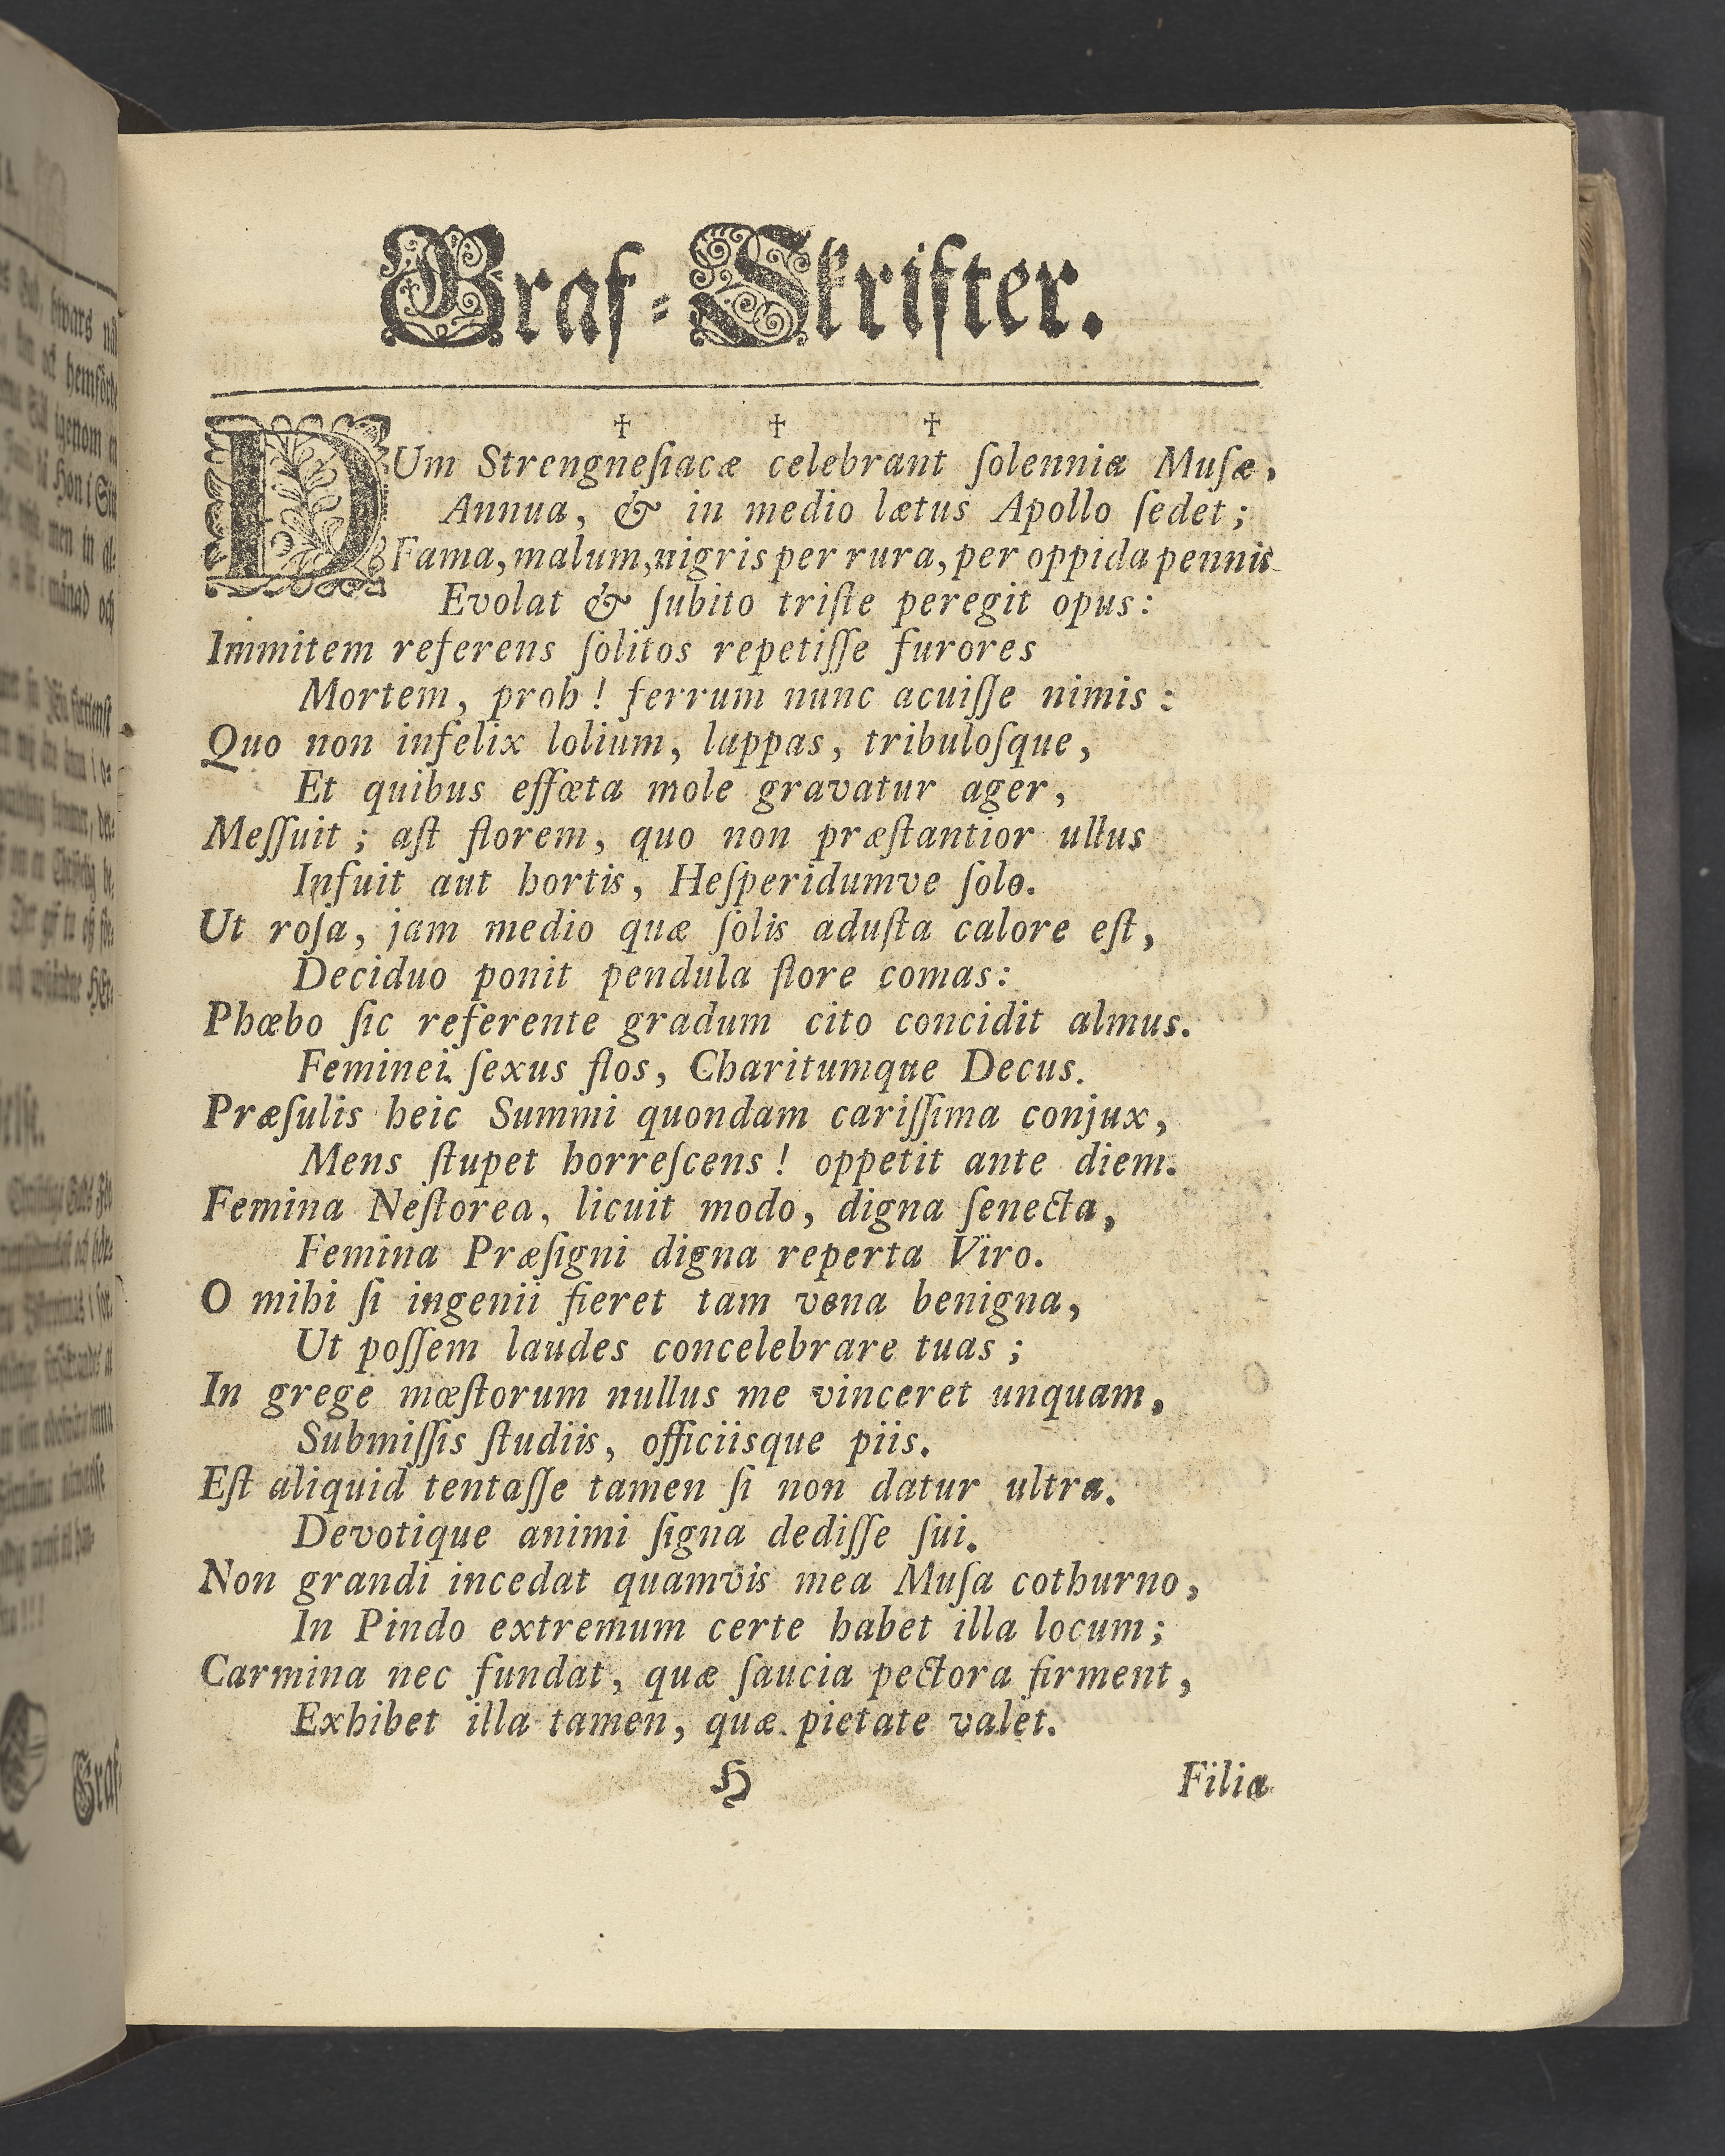 Graf-Skrifter.
† † †
DUm Strengneſiacæ celebrant ſolennia Muſæ,
Annua, & in medio lætus Apollo ſedet;
Fama, malum, nigris per rura, per oppida pennis
Evolat & ſubito triſte peregit opus:
Immitem referens ſolitos repetiſſe furores
Mortem, proh! ferrum nunc acuiſſe nimis:
Quo non infelix lolium, lappas, tribuloſque,
Et quibus effœta mole gravatur ager,
Meſſuit; aſt florem, quo non præſtantior ullus
Infuit aut hortis, Heſperidumve ſolo.
Ut roſa, jam medio quæ ſolis aduſta calore eſt,
Deciduo ponit pendula flore comas:
Phœbo ſic referente gradum cito concidit almus.
Feminei ſexus flos, Charitumque Decus.
Præſulis heic Summi quondam cariſſima conjux,
Mens ſtupet horreſcens! oppetit ante diem.
Femina Neſtorea, licuit modo, digna ſenecta,
Femina Præſigni digna reperta Viro.
O mihi ſi ingenii fieret tam vena benigna,
Ut poſſem laudes concelebrare tuas;
In grege mœſtorum nullus me vinceret unquam,
Submiſſis ſtudiis, officiisque piis.
Eſt aliquid tentaſſe tamen ſi non datur ultra.
Devotique animi ſigna dediſſe ſui.
Non grandi incedat quamvis mea Muſa cothurno,
In Pindo extremum certe habet illa locum;
Carmina nec fundat, quæ ſaucia pectora firment,
Exhibet illa tamen, quæ pietate valet.
H
Filia